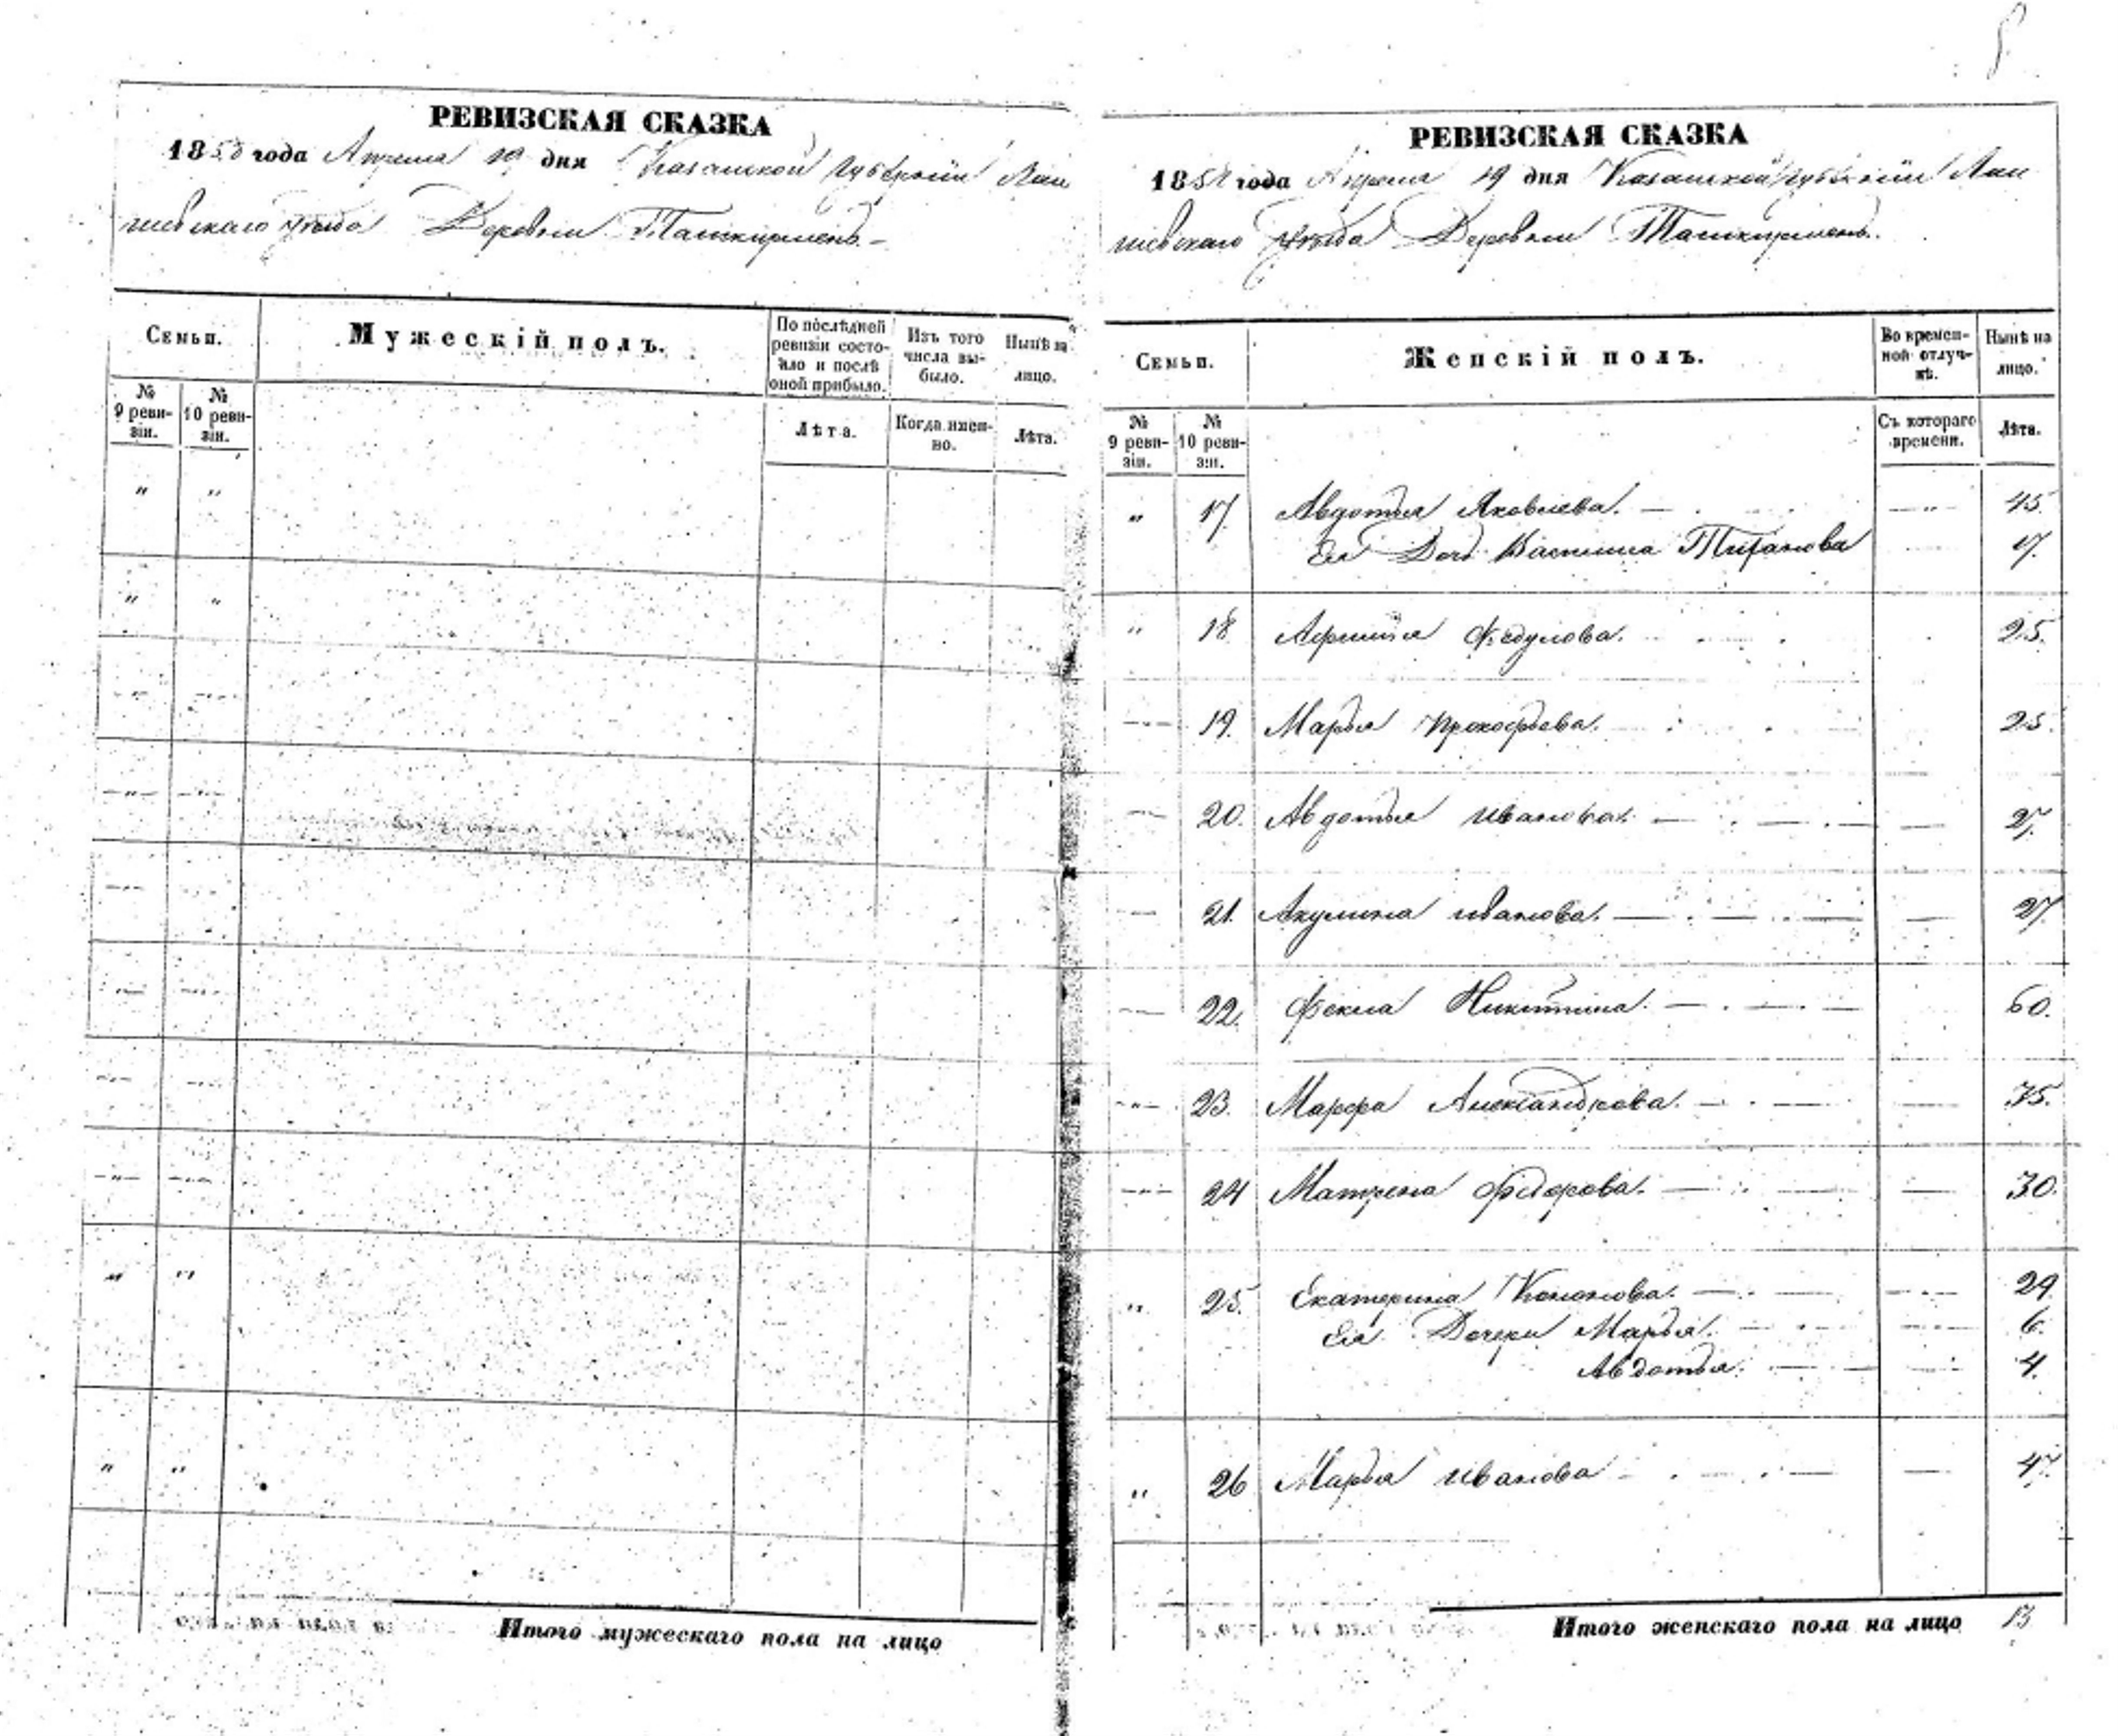 РЕВИЗСКАЯ СКАЗКА
1858 года Апреля 19 дня Казанской Губерніи Лаи
шевскаго уѣзда Деревни Ташкирмень.
Семьи.
Мужескій полъ.
По послѣдней ревизіи состояло и послѣ оной прибыло.
Изъ того числа выбыло.
Нынѣ на лицо.
№ 9 ревизіи.
№ 10 ревизіи.
Лѣта.
Когда именно.
Лѣта.
Итого мужескаго пола на лицо
РЕВИЗСКАЯ СКАЗКА
1858 года Апреля 19 дня Казанской Губерніи Лаи
шевскаго уѣзда Деревни Ташкирмень.
Семьи.
Женскій полъ.
Во временной отлучкѣ.
Нынѣ на лицо.
№ 9 ревизіи.
№ 10 ревизіи.
Съ котораго времени.
Лѣта.
" 17 Авдотья Яковлева. — " 45
Ея Дочь 17.
" 18 Федулова. 25.
" 19. Марья Прокофьева. 25.
" 20. Авдотья Иванова. — 27.
— 21. Акулина Иванова. — 27.
— 22. Фекла Никитина. — 60.
" 23. Марфа Александрова. — 35.
" 24 Матрена Федорова. — 30.
" 25. Екатерина Кононова. — 29.
Ея Дочери Марья. — 6.
Авдотья. — 4.
" 26 Марья Иванова — 47.
Итого женскаго пола на лицо 13